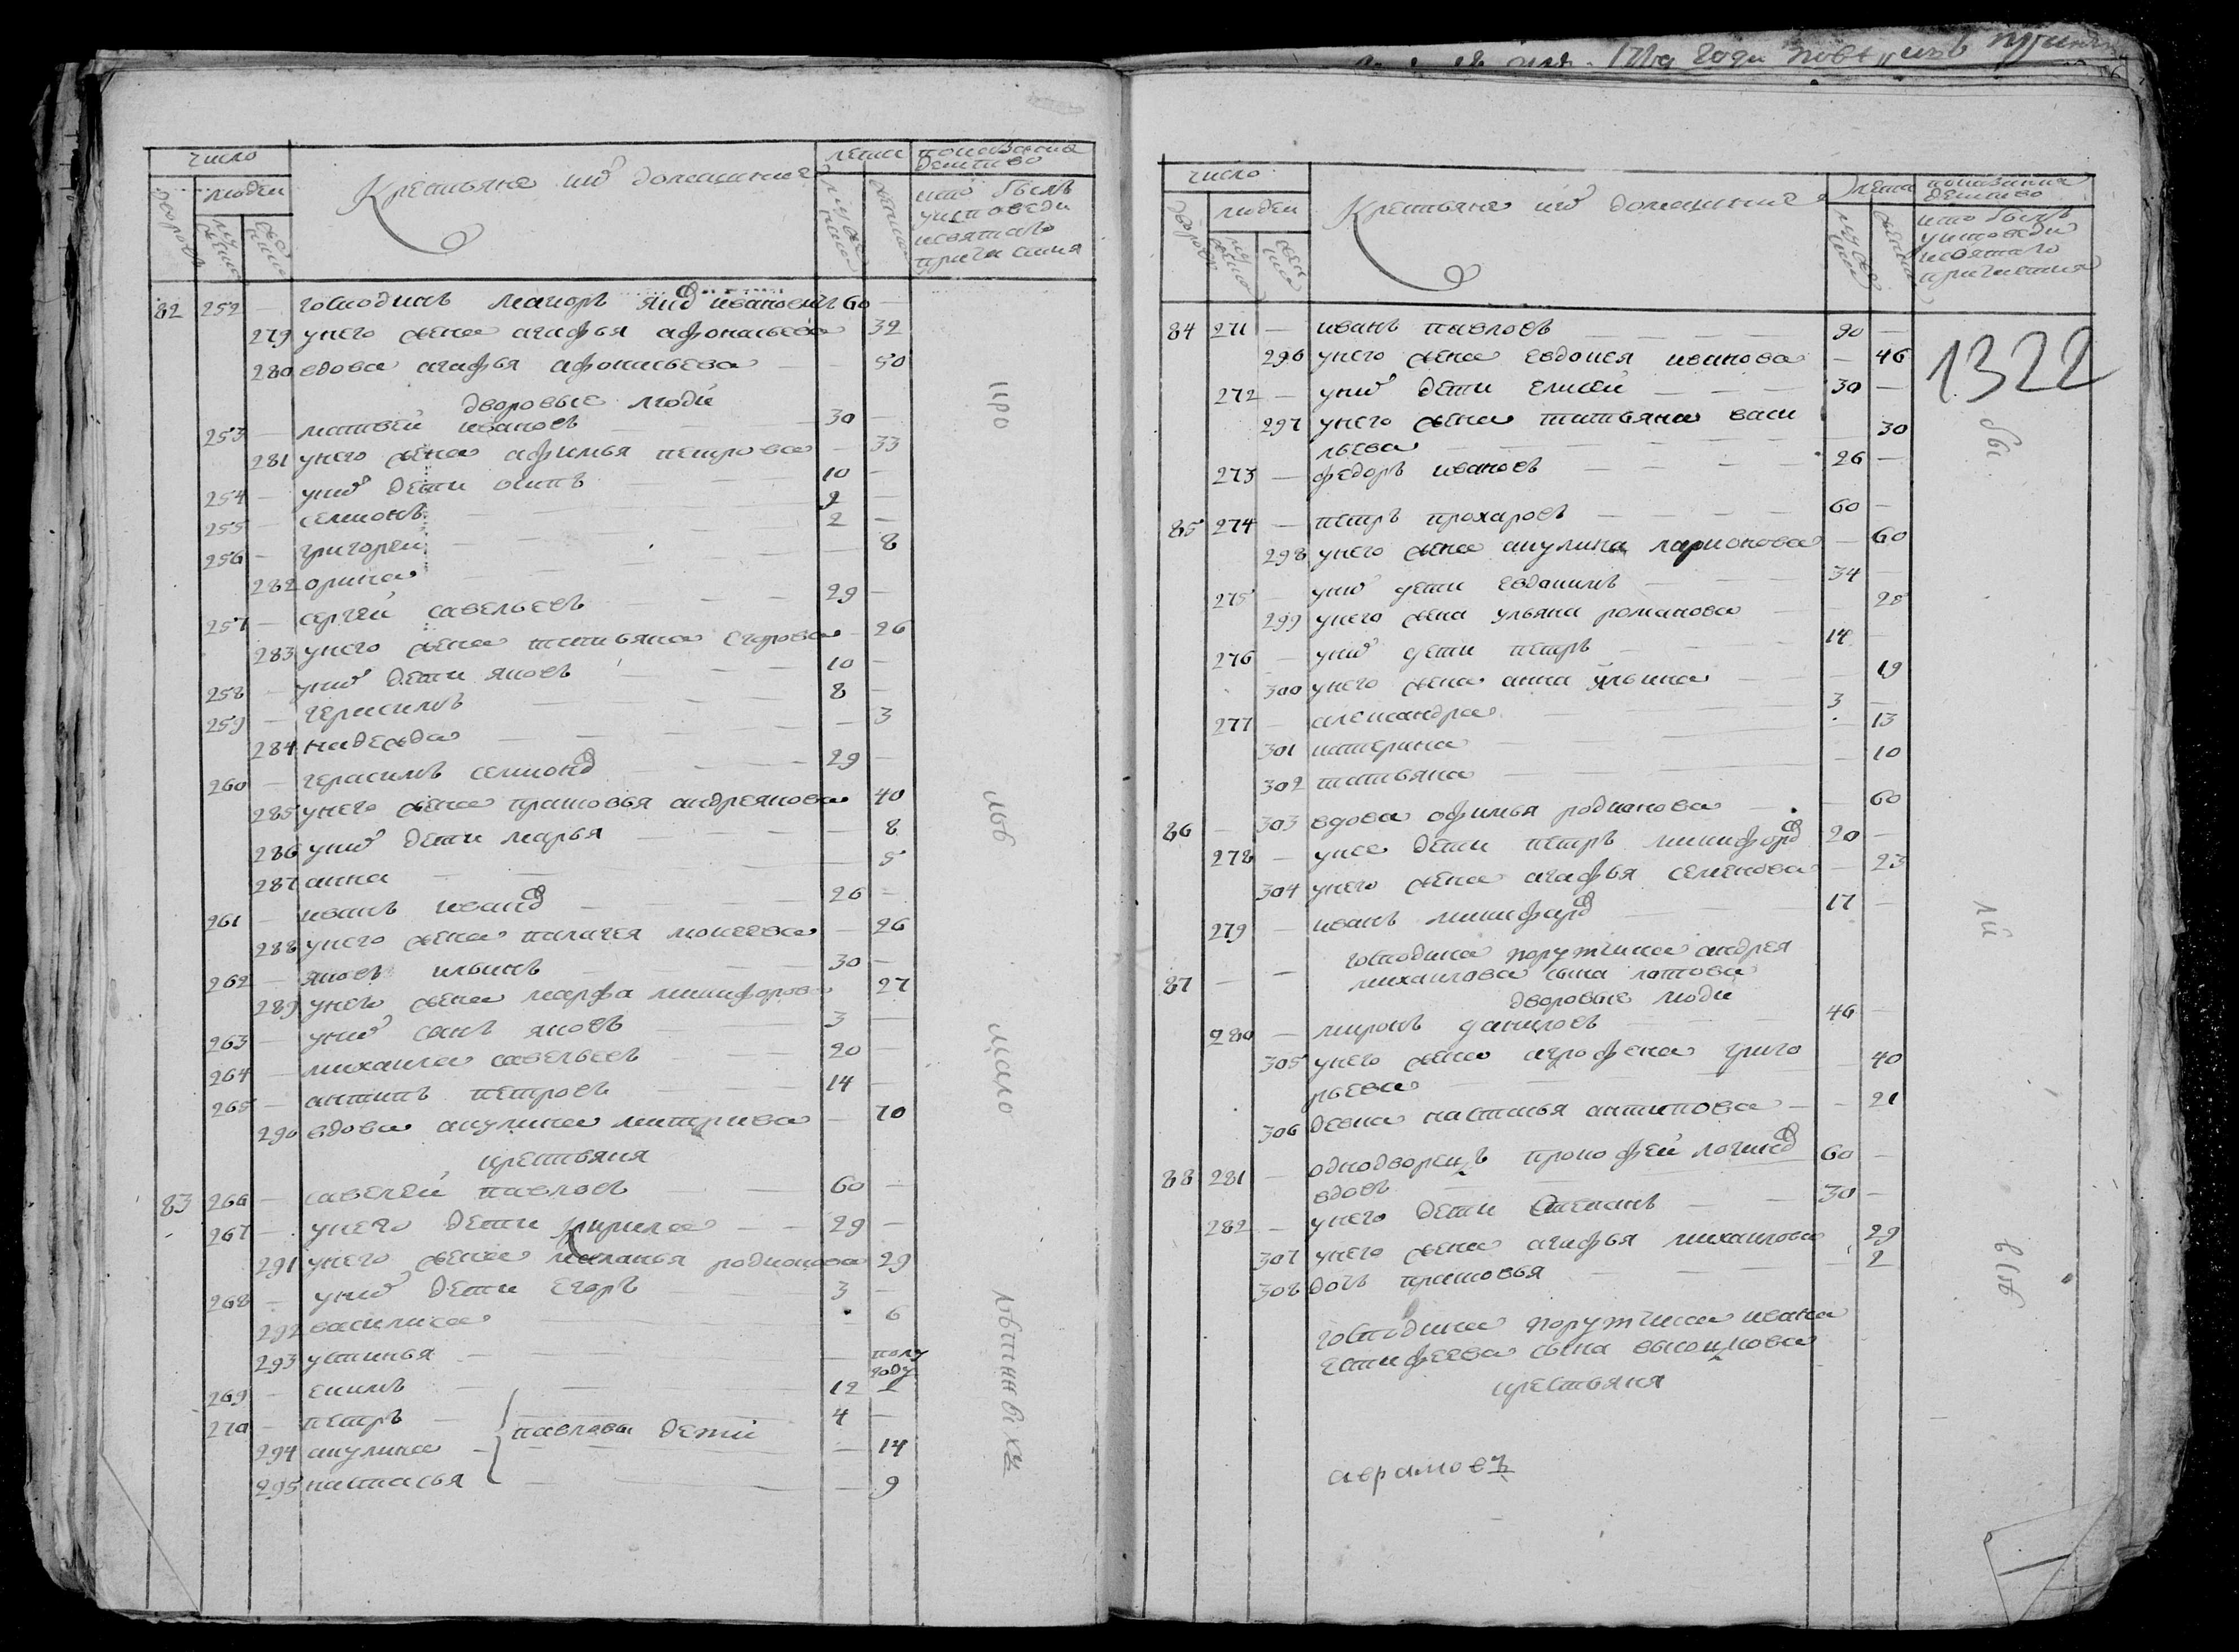 число
дворовъ
людей
мужеска
женска
Крестьяне ихъ домашние
лета
мужеска
женска
показание действо
кто былъ
уисповеди
исвятаго
причастия
82 252 — господинъ маиоръ ивановичъ 60 —
279 унего жена агафья афонасьева 32
280 вдова агафья афонасьева — — 50
дворовые люди
253 — матвей ивановъ 30 —
281 унего жена афимья петрова — 33
254 — унихъ дети осипъ 10 —
255 — семионъ 9 —
256 — григорей 2 —
282 орина — 8
257 — сергей савельевъ 29 —
283 унего жена татьяна егорова — 26
258 — унихъ дети яковъ 10 —
259 — герасимъ 8 —
284 надежда — 3
260 — герасимъ семионовъ 29 —
285 унего жена прасковья андреянова 40
286 унихъ дети марья — 8
287 анна — 5
261 — иванъ ивановъ 26 —
288 унего жена пилагея моисеева — 26
262 — яковъ ильинъ 30 —
289 унего жена марфа никифорова 27
263 — унихъ сынъ яковъ 3 —
264 — михаила савельевъ 20 —
265 — антипъ петровъ 14 —
290 вдова акулина митрива — 70
крестьяня
83 266 — савелей павловъ 60 —
267 — унего дети кирила 29 —
291 унего жена миланья родионова 29
268 — унихъ дети егоръ 3 —
292 василиса 6
293 устинья — полугоду
269 — екимъ 12 —
270 — петръ 4 —
294 акулина — павловы дети — 14
295 настасья — 9
про
ков
мало
летних
число
дворовъ
людей
мужеска
женска
Крестьяне ихъ домашние
лета
мужеска
женска
показание действо
кто былъ
уисповеди
исвятаго
причастия
1322
84 271 — иванъ павловъ 90 —
296 унего жена евдокея иванова — 46
272 — унихъ дети елисей 30 —
297 унего жена татьяна васи
льева 30
273 — федоръ ивановъ 26 —
85 274 — петръ прохаровъ 60 —
298 унего жена акулина ларионова — 60
275 — унихъ дети евдокимъ 34 —
299 унего жена ульяна романова 25
276 — унихъ дети петръ 14 —
300 унего жена анна ильина 19
277 — александра 3 —
301 катерина — 13
302 татьяна — 10
86 — 303 вдова офимья родионова — 60
278 — унее дети петръ никифоровъ 20 —
304 унего жена агафья семенова — 23
279 — иванъ никифоровъ 17 —
87 — — господина порутчика андрея
михаилова сына лотова
дворовые люди
280 — миронъ даниловъ 46 —
305 унего жена агрофена григо
рьева — 40
306 девка настасья антипова — — 21
88 281 — однодворецъ прокофей логиновъ 60 —
вдовъ
282 — унего дети степанъ 30 —
307 унего жена агафья михаилова 29
308 дочь прасковья — 2
господина порутчика ивана
сына высоцкова
крестьяня
аврамовъ
бы
ли